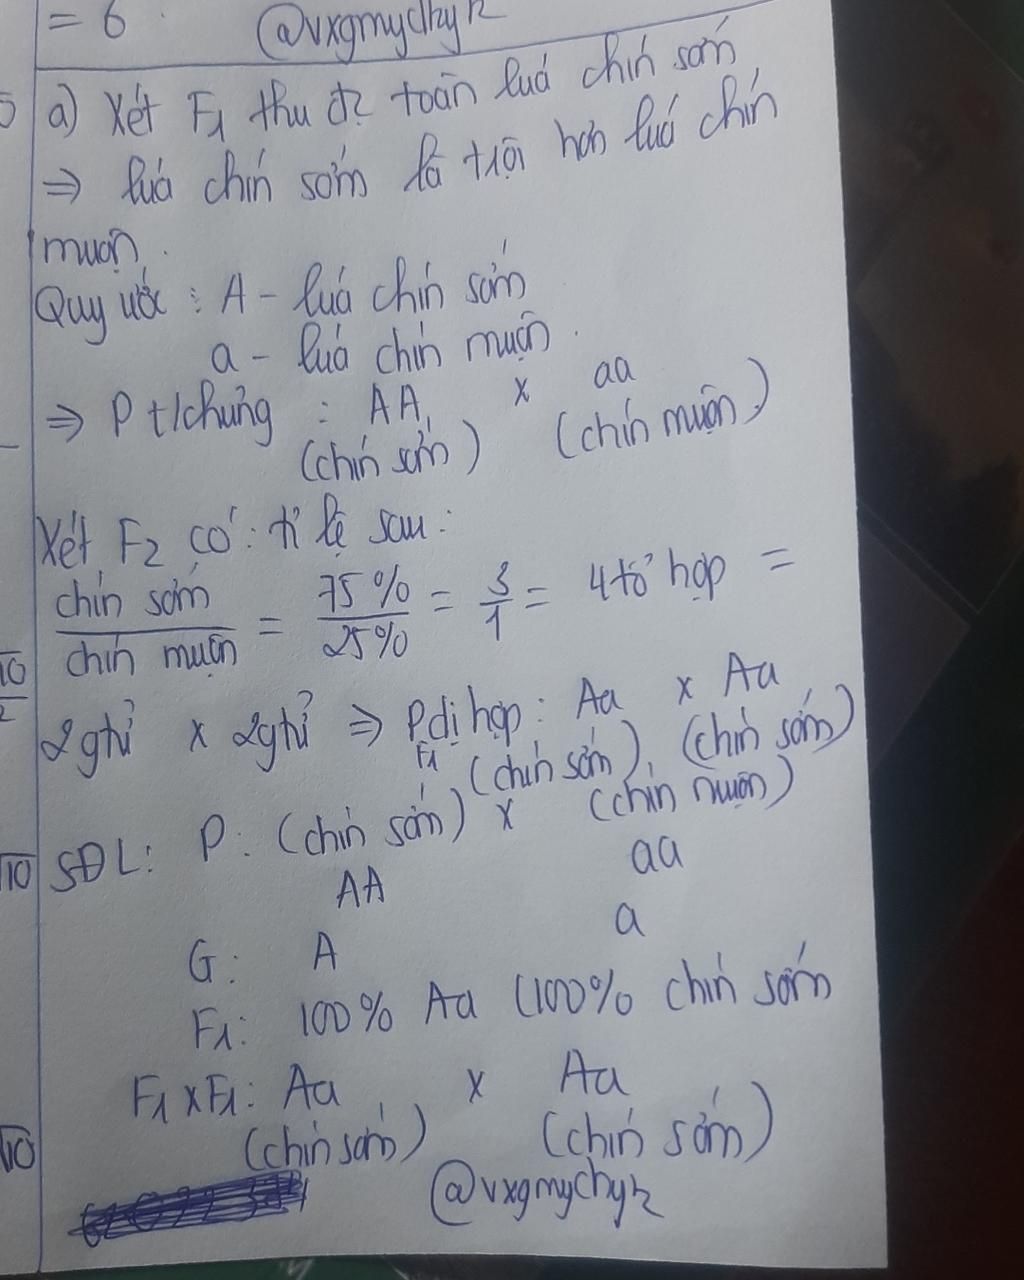 = 6 @vxgmychyk
a) Xét F1 thu đc toàn luá chín sớm
=> luá chín sớm là trội hơn luá chín
muộn.
Quy ước : A - luá chín sớm
a - luá chín muộn.
=> P t/chủng : AA x aa
(chín sớm) (chín muộn)
Xét F2 có: tỉ lệ sau:
chín sớm / chín muộn = 75% / 25% = 3/1 = 4 tổ hợp =
2 gtử x 2 gtử => P dị hợp : Aa x Aa
F1 (chín sớm), (chín sớm)
SĐL: P: (chín sớm) x (chín muộn)
AA aa
G: A a
F1: 100% Aa (100% chín sớm
F1 x F1: Aa x Aa
(chín sớm) (chín sớm)
@vxgmychyk
10
2
√10
√10